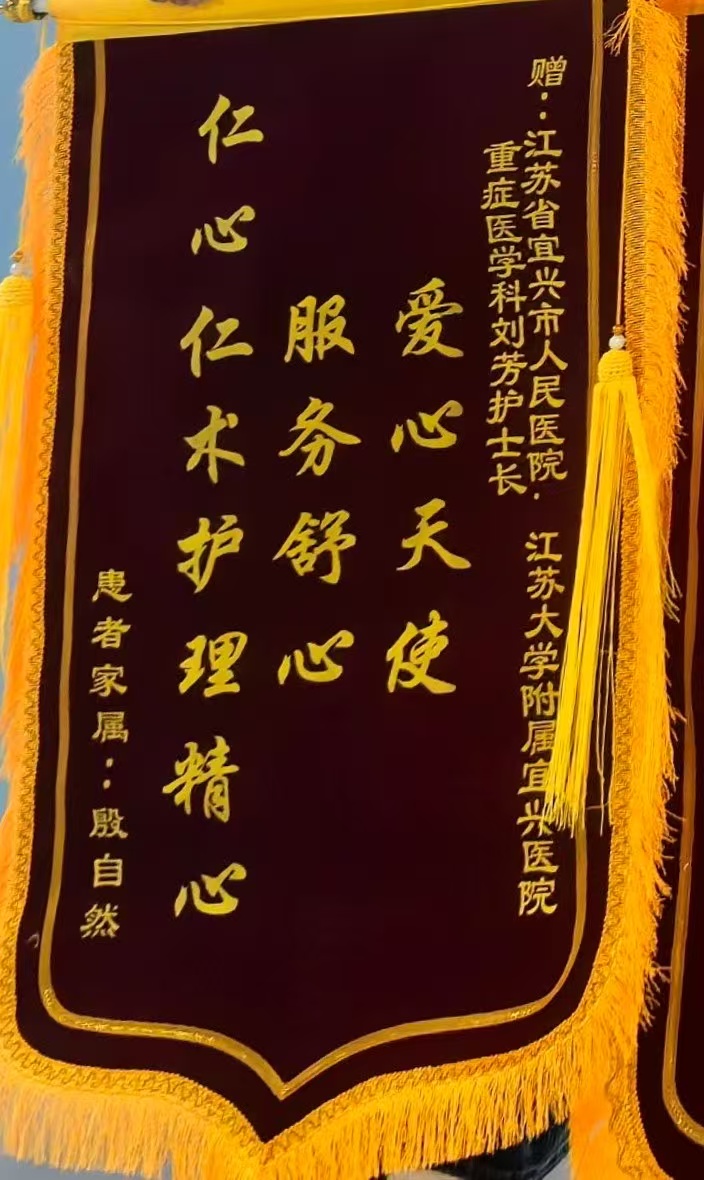 赠：江苏省宜兴市人民医院．江苏大学附属宜兴医院
重症医学科刘芳护士长
爱心天使
服务舒心
仁心仁术护理精心
患者家属：殷自然